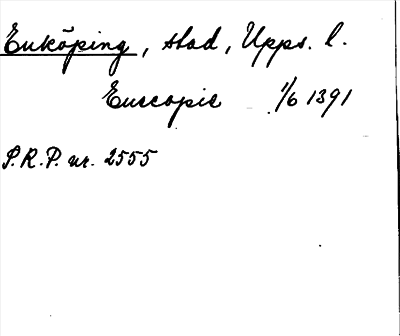 Enköping, stad, Upps. l.
Encopie 1/6 1391
S.R.P. nr. 2555